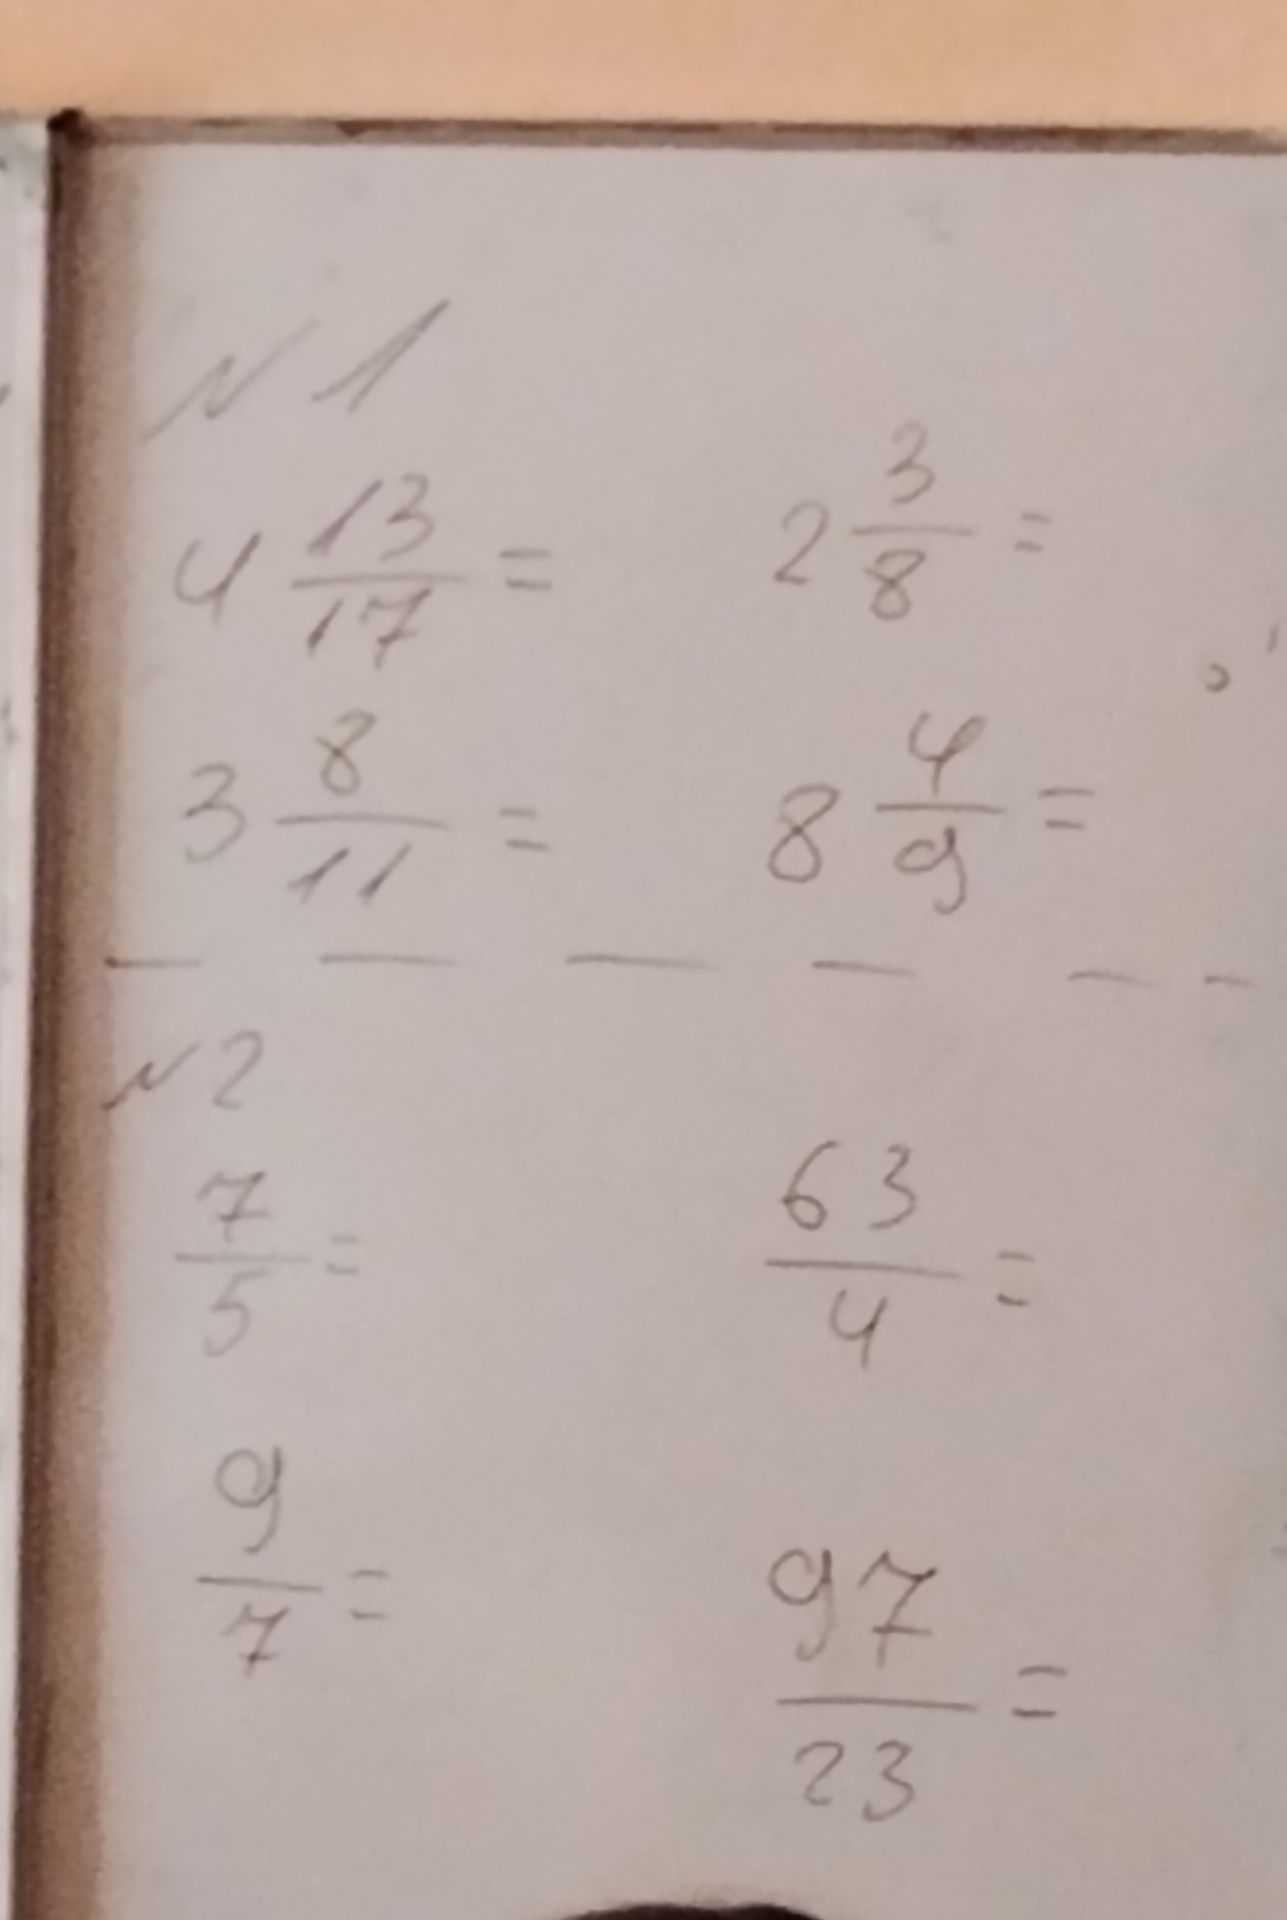 №1
4 13/17 =    2 3/8 =
3 8/11 =    8 4/9 =
№2
7/5 =    63/4 =
9/7 =    97/23 =